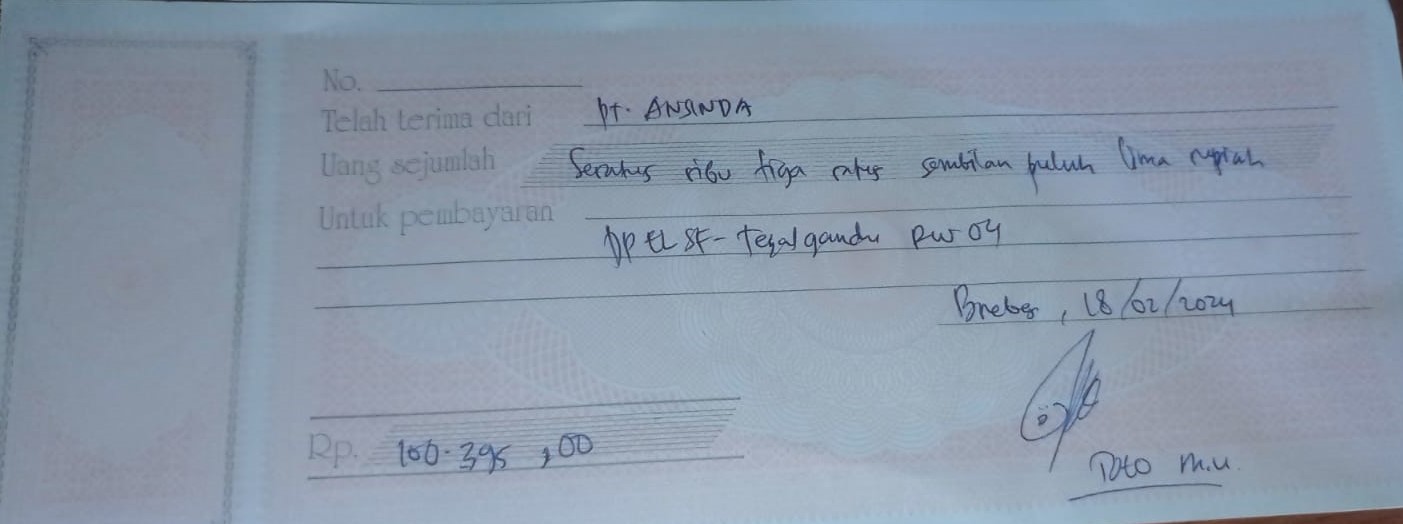 No.
Telah terima dari pt. ANSINDA
Uang sejumlah Seratus ribu tiga ratus sembilan puluh lima rupiah
Untuk pembayaran
DP ELSF - Tegalgandu RW 04
Brebes, 18/02/2024
Rp. 100.395,00
Toto M.U.